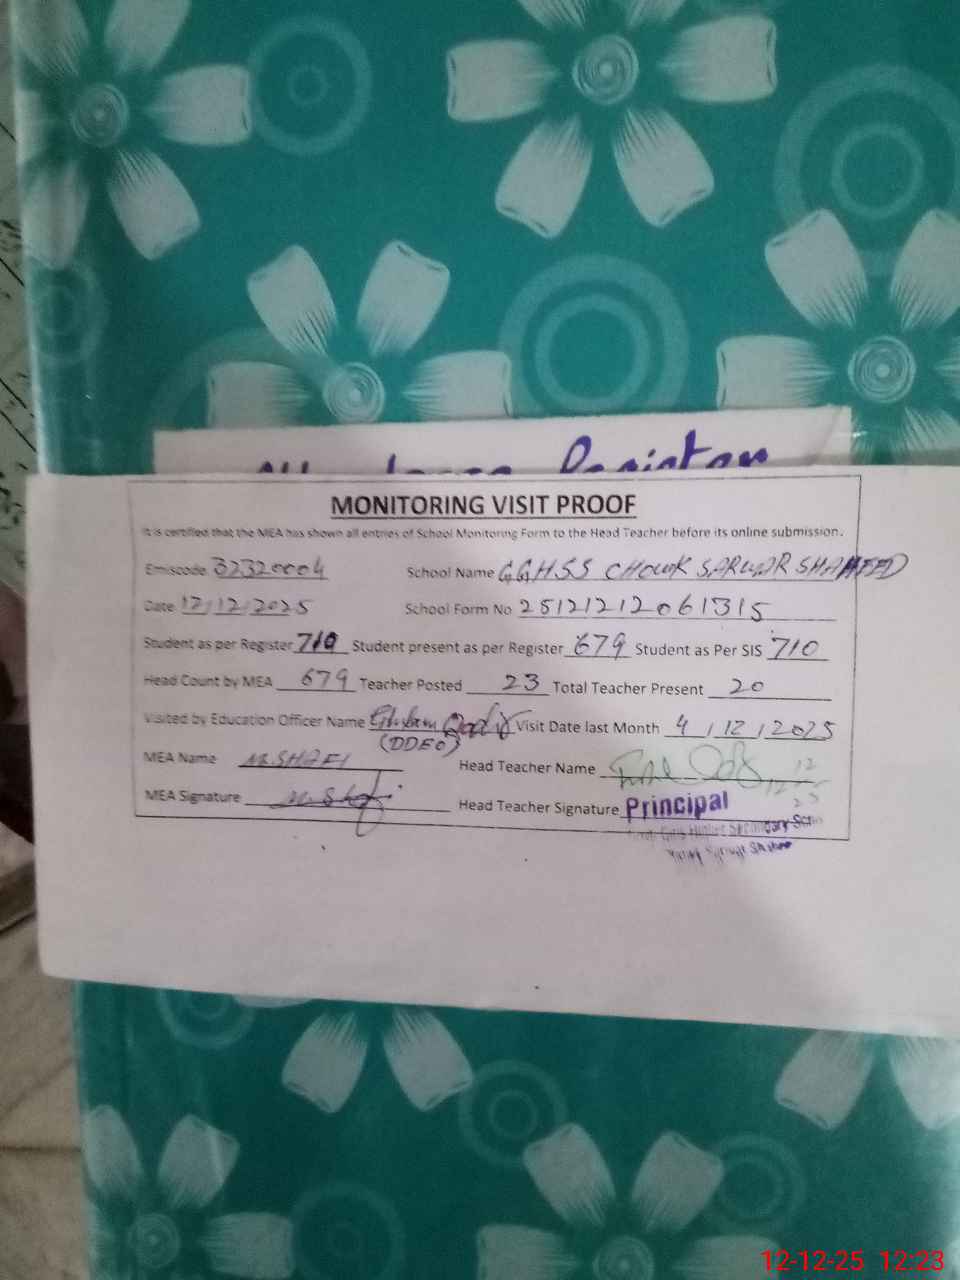 Attendance Register
MONITORING VISIT PROOF
It is certified that the MEA has shown all entries of School Monitoring Form to the Head Teacher before its online submission.
Emiscode 32320004 School Name GGHSS CHOWK SARWAR SHAHEED
Date 12/12/2025 School Form No 25121212061315
Student as per Register 710 Student present as per Register 679 Student as Per SIS 710
Head Count by MEA 679 Teacher Posted 23 Total Teacher Present 20
Visited by Education Officer Name Ghulam Qadir Visit Date last Month 4/12/2025
(DDEO)
MEA Name M.SHAFI Head Teacher Name
12
12
25
MEA Signature M.Shafi Head Teacher Signature Principal
Govt. Girls Higher Secondary
12-12-25 12:23